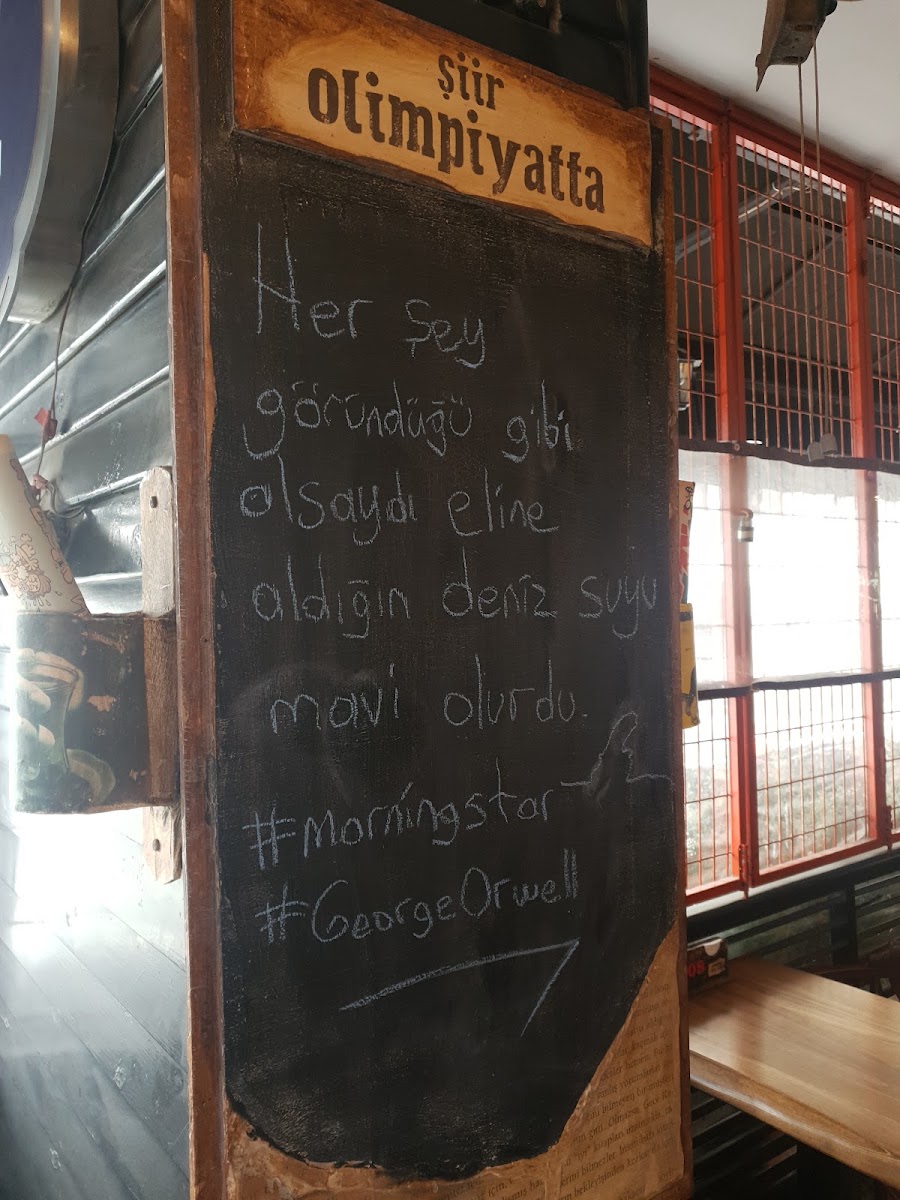 şiir
olimpiyatta
Her şey
göründüğü gibi
olsaydı eline
aldığın deniz suyu
mavi olurdu.
#Morningstar
#GeorgeOrwell